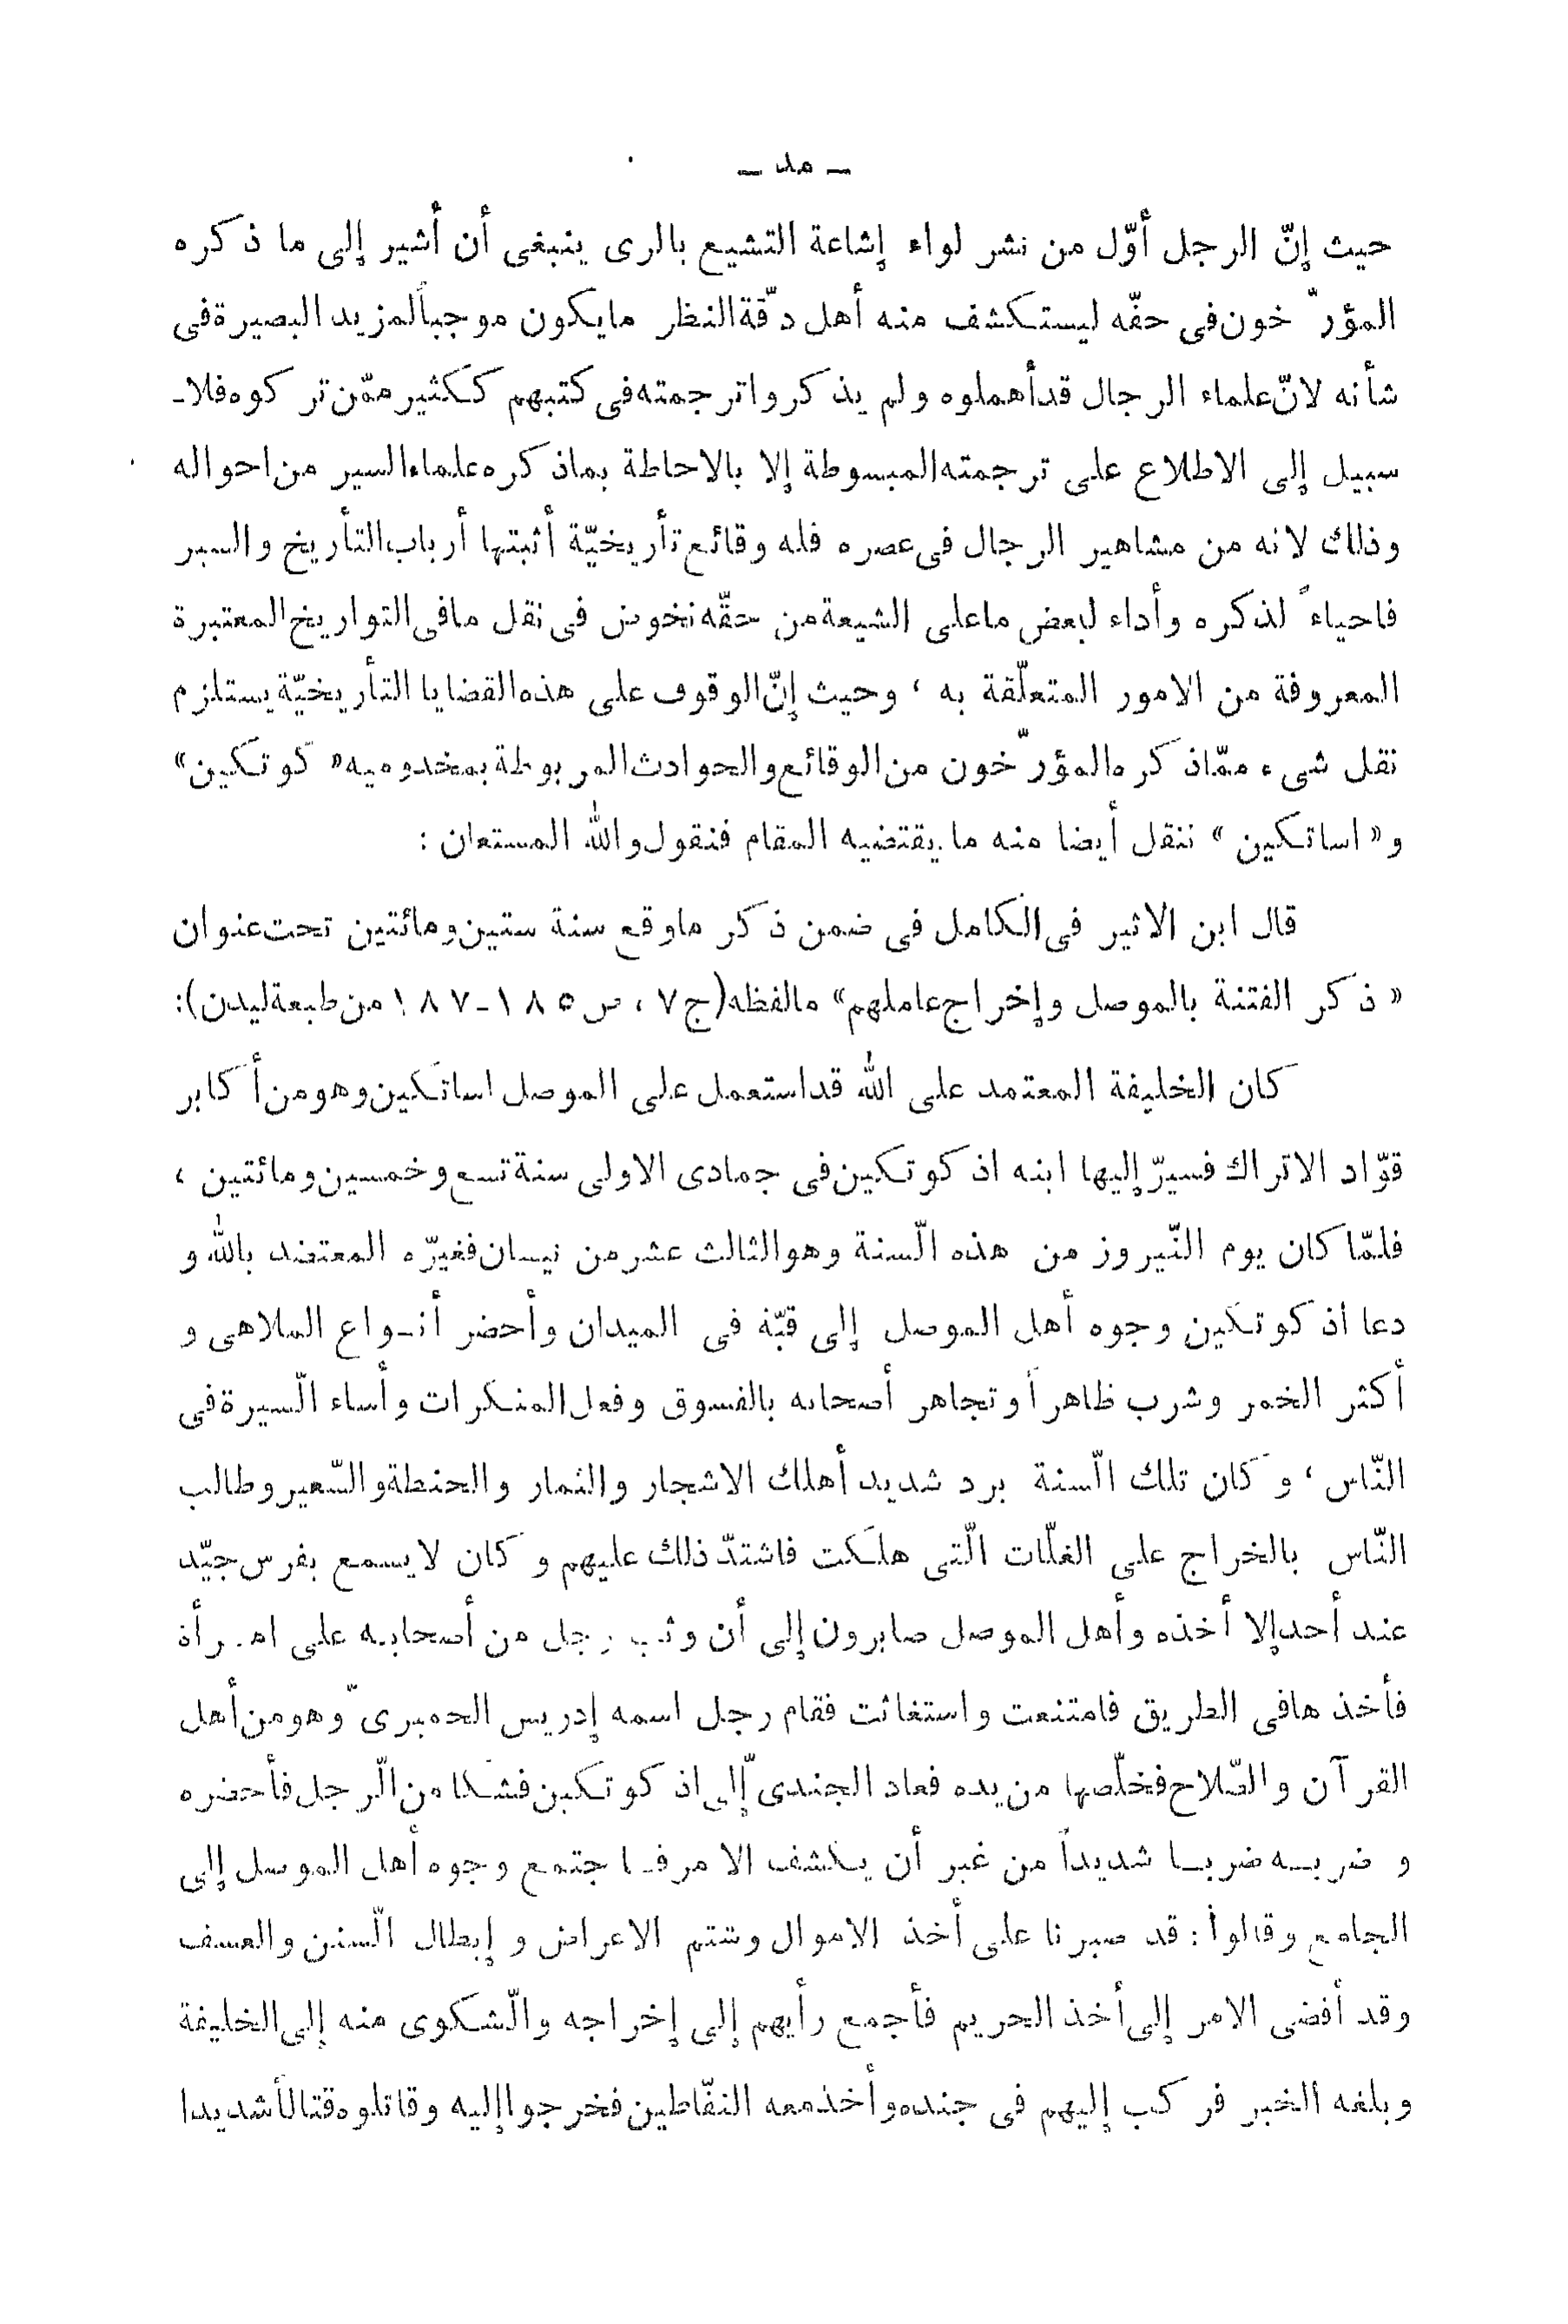 ـ مد ـ
حيث إنّ الرجل أوّل من نشر لواء إشاعة التشيع بالرى ينبغى أن أشير إلى ما ذكره
المؤرّخون فى حقّه ليستكشف منه أهل دقّة النظر مايكون موجباً لمزيد البصيرة فى
شأنه لانّ علماء الرجال قد أهملوه ولم يذكروا ترجمته فى كتبهم ككثير ممّن تركوه فلاـ
سبيل إلى الاطلاع على ترجمته المبسوطة إلا بالاحاطة بماذكره علماء السير من احواله
وذلك لانه من مشاهير الرجال فى عصره فله وقائع تأريخيّة أثبتها أرباب التأريخ والسير
فاحياءً لذكره وأداء لبعض ماعلى الشيعة من حقّه نخوض فى نقل مافى التواريخ المعتبرة
المعروفة من الامور المتعلّقة به ، وحيث إنّ الوقوف على هذه القضايا التأريخيّة يستلزم
نقل شىء ممّاذكره المؤرّخون من الوقائع والحوادث المربوطة بمخدوميه « كوتكين»
و« اساتكين » ننقل أيضا منه ما يقتضيه المقام فنقول والله المستعان :
قال ابن الاثير فى الكامل فى ضمن ذكر ماوقع سنة ستين ومائتين تحت عنوان
« ذكر الفتنة بالموصل وإخراج عاملهم» مالفظه (ج٧ ، ص ١٨٥ـ١٨٧ من طبعة ليدن):
كان الخليفة المعتمد على الله قد استعمل على الموصل اساتكين وهو من أكابر
قوّاد الاتراك فسيرّ إليها ابنه اذكوتكين فى جمادى الاولى سنة تسع وخمسين ومائتين ،
فلمّا كان يوم النّيروز من هذه السّنة وهو الثالث عشر من نيسان فغيرّه المعتضد بالله و
دعا اذكوتكين وجوه أهل الموصل إلى قبّة فى الميدان وأحضر أنـواع الملاهى و
أكثر الخمر وشرب ظاهراً وتجاهر أصحابه بالفسوق وفعل المنكرات وأساء السّيرة فى
النّاس ، و كان تلك السّنة برد شديد أهلك الاشجار والثمار والحنطة والشّعير وطالب
النّاس بالخراج على الغلّات الّتى هلكت فاشتدّ ذلك عليهم و كان لايسمع بفرس جيّد
عند أحد إلا أخذه وأهل الموصل صابرون إلى أن وثب رجل من أصحابه على امرأة
فأخذ هافى الطريق فامتنعت واستغاثت فقام رجل اسمه إدريس الحميرىّ وهو من أهل
القرآن والصّلاح فخلّصها من يده فعاد الجندىّ إلى اذكوتكين فشكا من الرّجل فأحضره
و ضربـه ضربـا شديداً من غير أن يكشف الامر فـاجتمع وجوه أهل الموصل إلى
الجامع وقالوا : قد صبرنا على أخذ الاموال وشتم الاعراض و إبطال السّنن والعسف
وقد أفضى الامر إلى أخذ الحريم فأجمع رأيهم إلى إخراجه والشّكوى منه إلى الخليفة
وبلغه الخبر فركب إليهم فى جنده وأخذ معه النفّاطين فخرجوا إليه وقاتلوه قتالاً شديدا